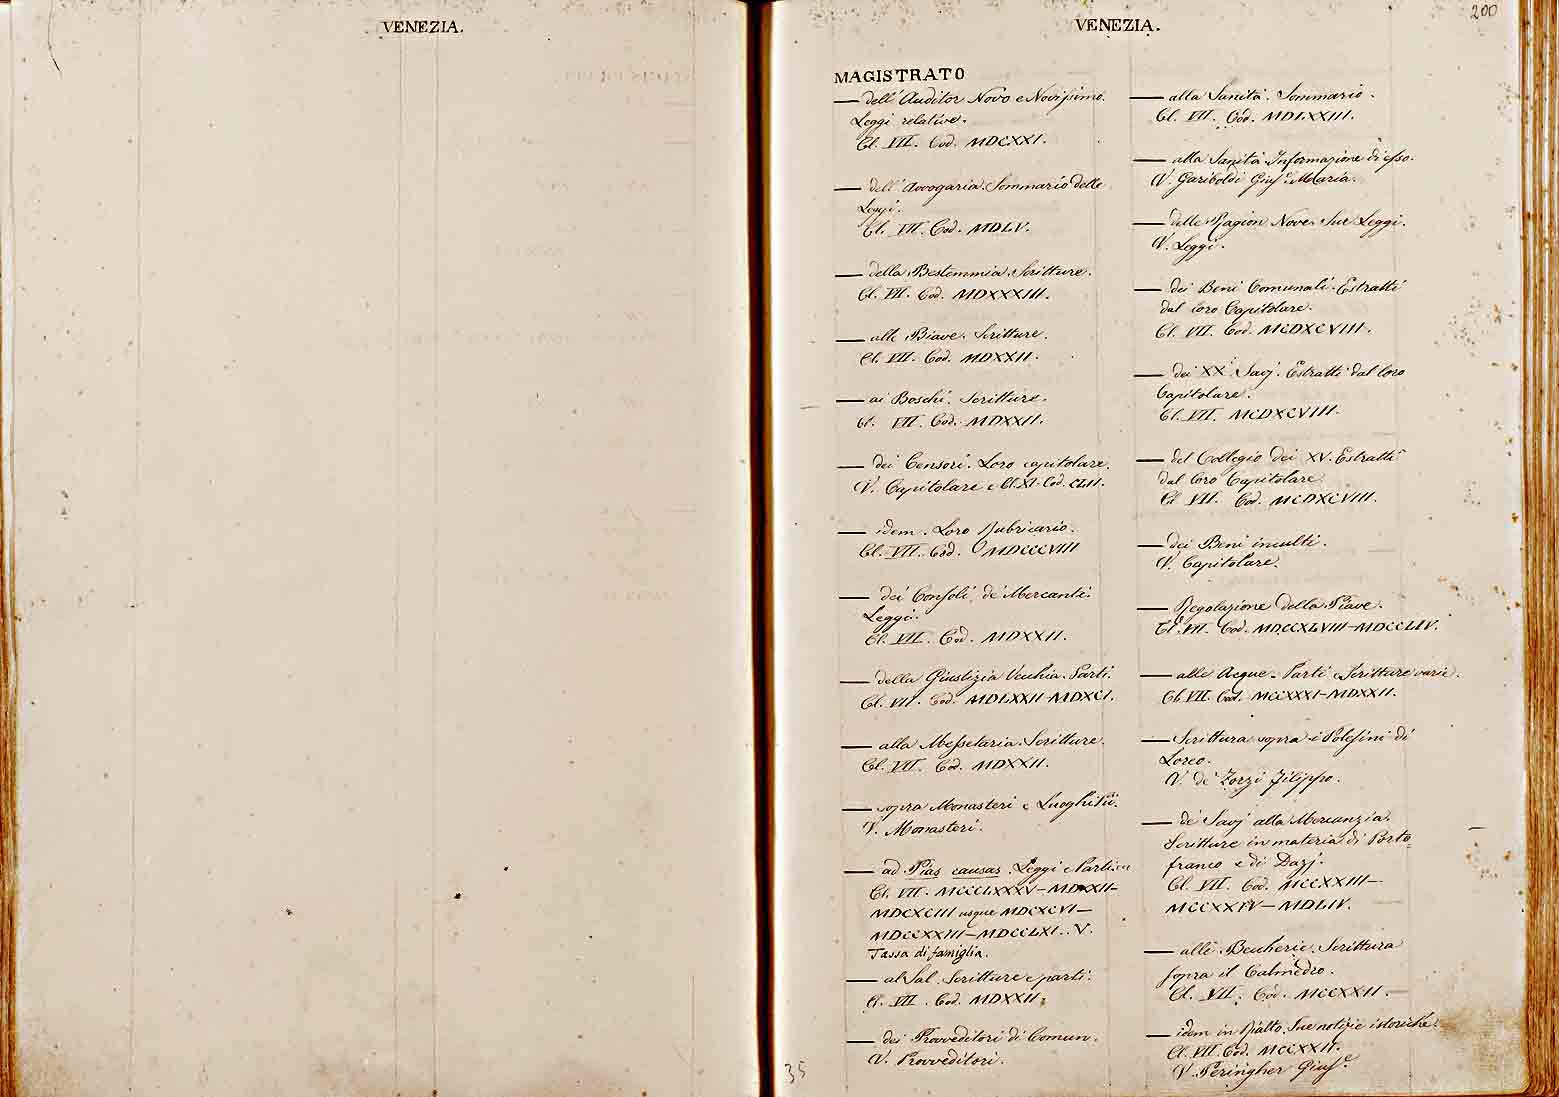 VENEZIA.
VENEZIA.
200
MAGISTRATO
— dell' Auditor Novo e Novissimo.
Leggi relative.
Cl. VII. Cod. MDCXXI.
— dell' Avvogaria. Sommario delle
Leggi.
Cl. VII. Cod. MDLV.
— della Bestemmia. Scritture.
Cl. VII. Cod. MDXXXIII.
— alle Biave. Scritture.
Cl. VII. Cod. MDXXII.
— ai Boschi. Scritture.
Cl. VII. Cod. MDXXII.
— dei Censori. Loro capitolare.
V. Capitolare e Cl. XI. Cod. CLII.
— idem. Loro Rubricario.
Cl. VII. Cod. MDCCCVIII
— dei Consoli de' Mercanti.
Leggi.
Cl. VII. Cod. MDXXII.
— della Giustizia Vecchia. Parti.
Cl. VII. Cod. MDLXXII-MDXCI.
— alla Messetaria. Scritture.
Cl. VII. Cod. MDXXII.
— sopra Monasteri e Luoghi Pii.
V. Monasteri.
— ad Pias causas. Leggi e Parti.
Cl. VII. MCCCLXXXV-MDXXII-
MDCXCIII usque MDCXCVI-
MDCCXXIII-MDCCLXI. V.
Tassa di famiglia.
— al Sal. Scritture e parti.
Cl. VII. Cod. MDXXII.
— dei Provveditori di Comun.
V. Provveditori.
35
— alla Sanità. Sommario.
Cl. VII. Cod. MDLXXIII.
— alla Sanità. Informazione di esso.
V. Gariboldi Gius.e Maria.
— delle Ragion Nove. Sue Leggi.
V. Leggi.
— dei Beni Comunali. Estratti
dal loro Capitolare.
Cl. VII. Cod. MCDXCVIII.
— dei XX Savj. Estratti dal loro
Capitolare.
Cl. VII. MCDXCVIII.
— del Collegio dei XV. Estratti
dal loro Capitolare.
Cl. VII. Cod. MCDXCVIII.
— dei Beni inculti.
V. Capitolare.
— Regolazione della Piave.
Cl. VII. Cod. MDCCXLVIII-MDCCLIV.
— alle Acque. Parti e Scritture varie.
Cl. VII. Cod. MCCXXXI-MDXXII.
— Scrittura sopra i Polesini di
Loreo.
V. de' Zorzi Filippo.
— de' Savj alla Mercanzia.
Scritture in materia di Porto
franco e di Dazj.
Cl. VII. Cod. MCCXXIII-
MCCXXIV-MDLIV.
— alle Beccherie. Scrittura
sopra il Calmedro.
Cl. VII. Cod. MCCXXII.
— idem in Rialto. Sue notizie istoriche.
Cl. VII. Cod. MCCXXII.
V. Peringher Gius.e